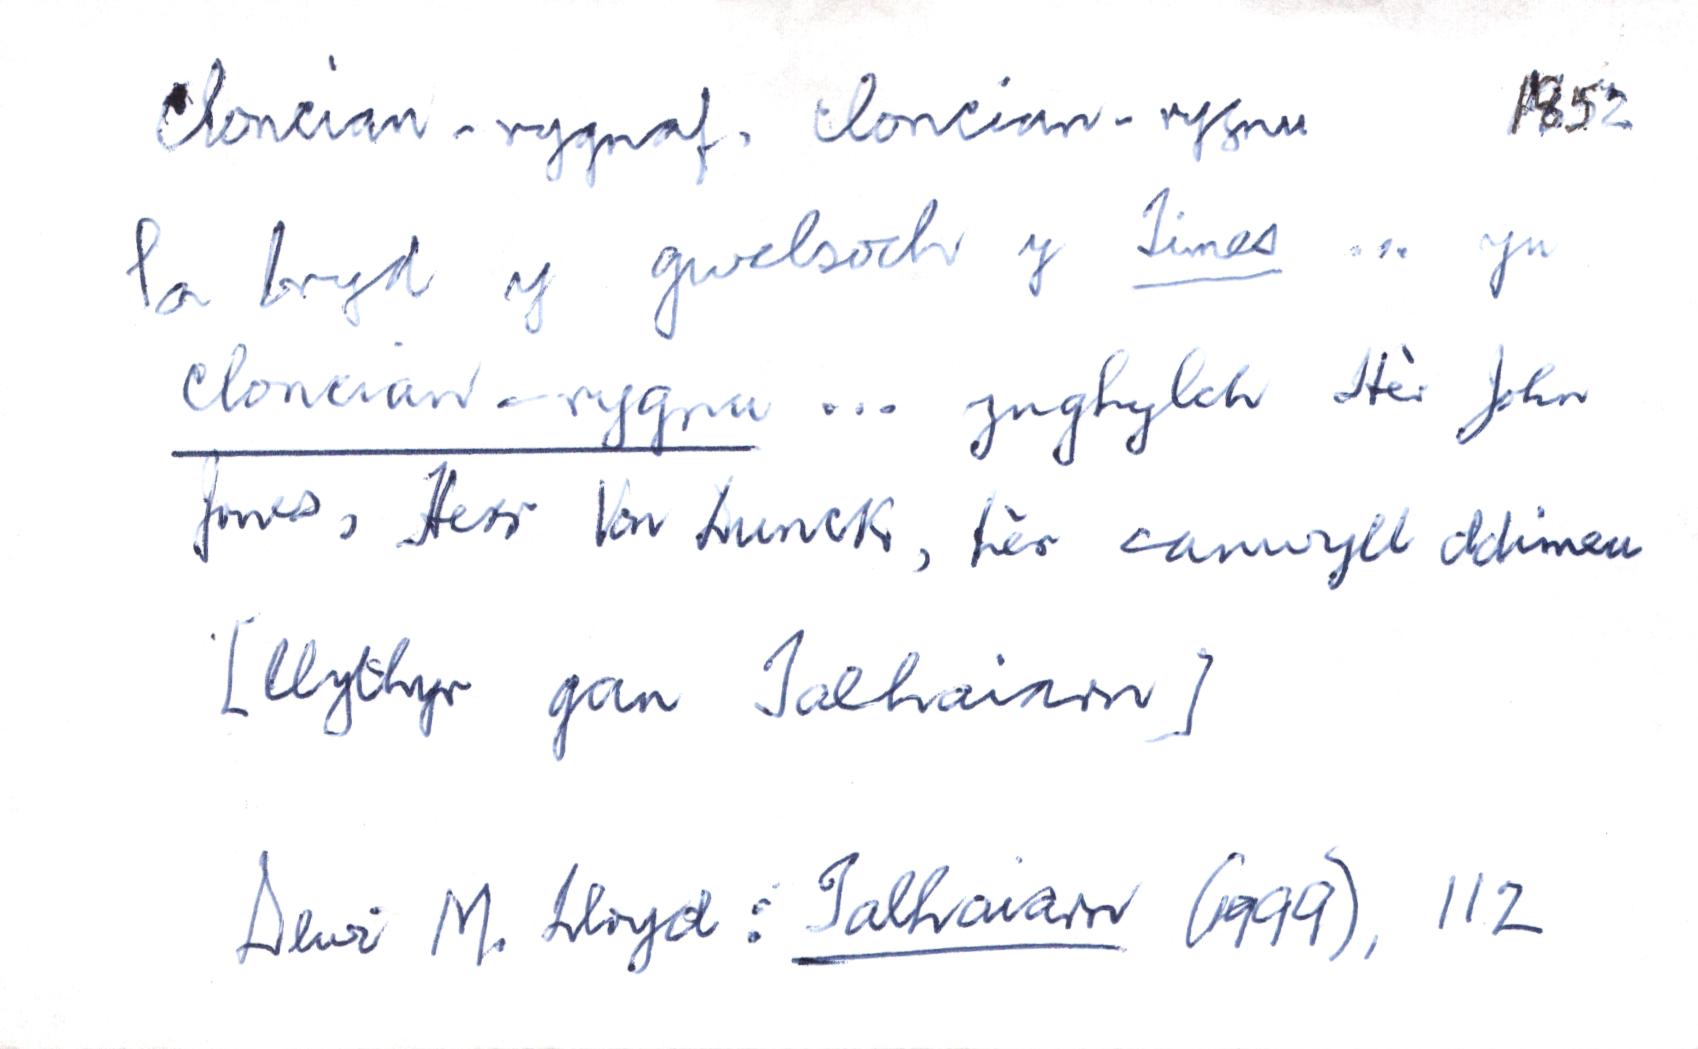 cloncian-rygnaf, cloncian-rygnu 1852
Pa bryd y gwelsoch y Times ... yn
cloncian-rygnu ... ynghylch Hèr John
Jones, Herr Von Dunck, hèr canwyll ddimeu
[llythyr gan Talhaiarn]
Dewi M. Lloyd: Talhaiarn (1999), 112